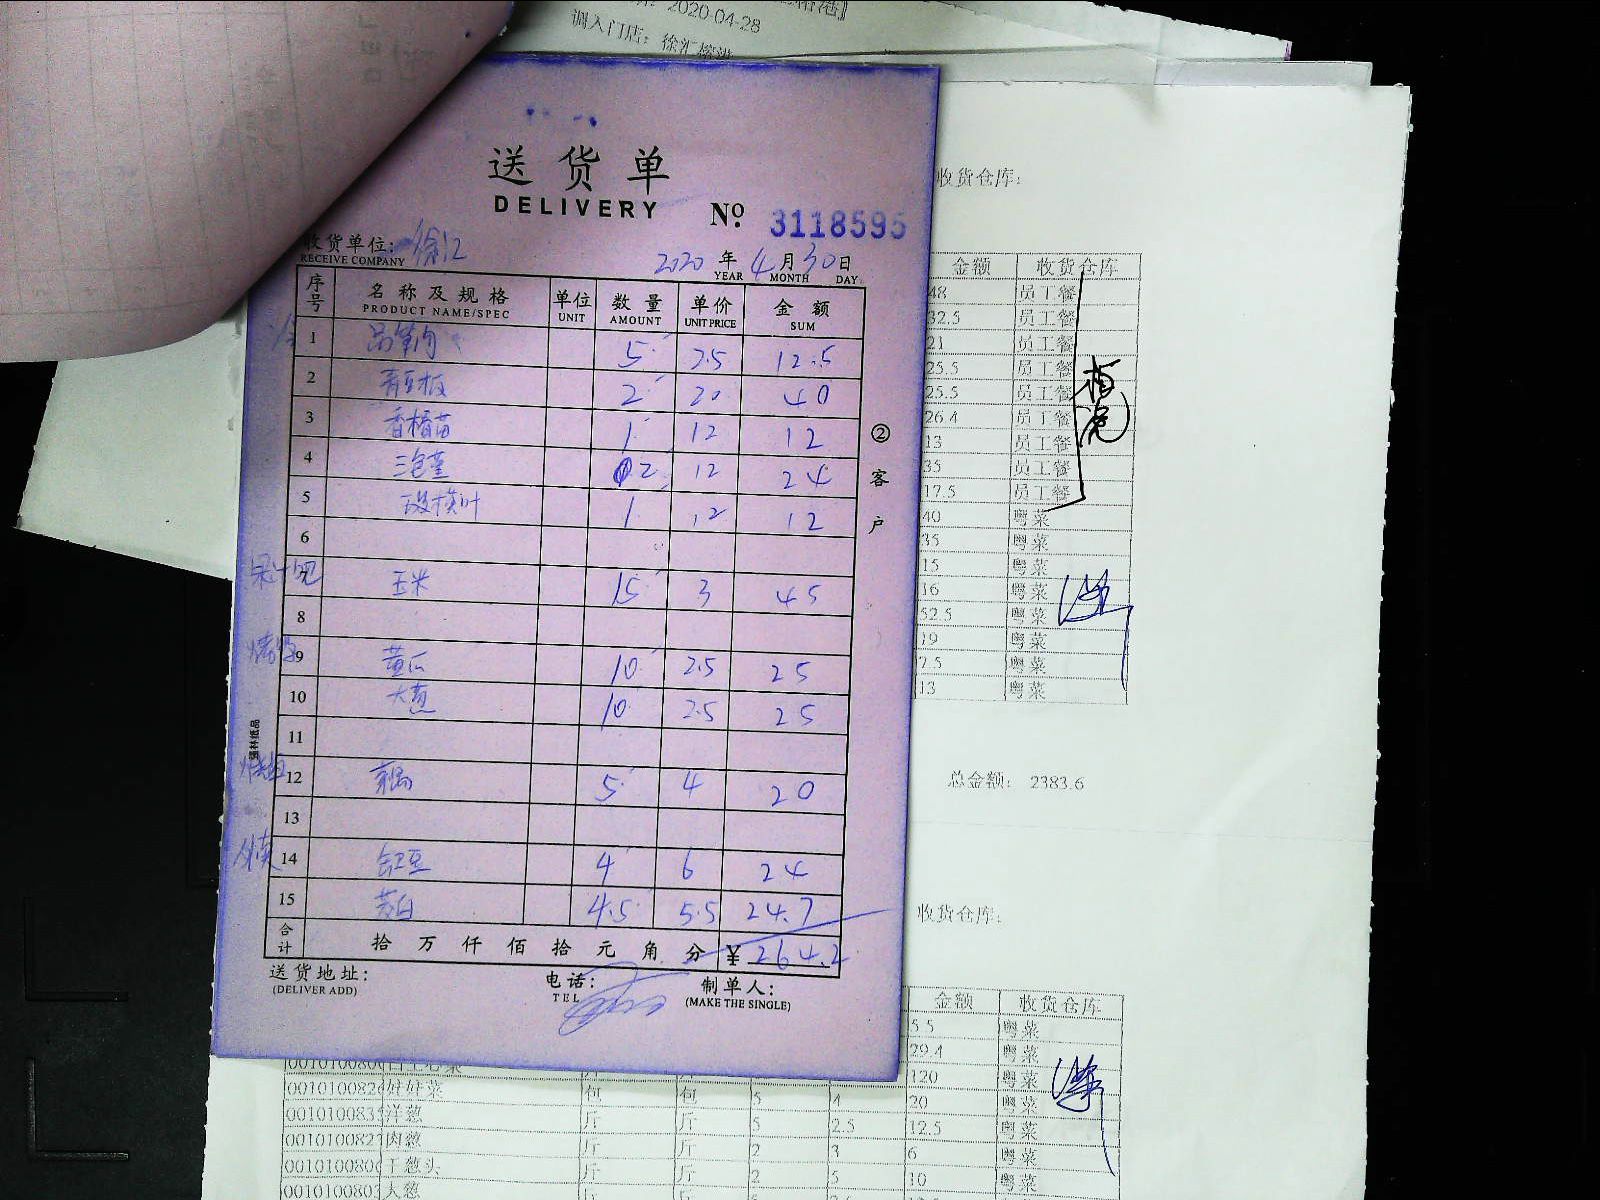 2020-04-28
调入门店：徐汇
送货单
DELIVERY № 3118595
收货单位: 徐汇 2020年4月30日
RECEIVE COMPANY YEAR MONTH DAY
序号 名称及规格 单位 数量 单价 金额
PRODUCT NAME/SPEC UNIT AMOUNT UNIT PRICE SUM
1 5 2.5 12.5
2 2 20 40
3 香椿苗 1 12 12
4 2 12 24
5 1 12 12
6
果汁吧 玉米 15 3 45
8
9 黄瓜 10 2.5 25
10 大葱 10 2.5 25
11
12 5 4 20
13
14 豇豆 4 6 24
15 4.5 5.5 24.7
合计 拾万仟佰拾元角分 ¥ 264.2
送货地址: 电话: 制单人:
(DELIVER ADD) TEL (MAKE THE SINGLE)
②客户
强林纸品
收货仓库：
金额 收货仓库
48 员工餐
32.5 员工餐
21 员工餐
25.5 员工餐
25.5 员工餐
26.4 员工餐
13 员工餐
35 员工餐
17.5 员工餐
40 粤菜
35 粤菜
15 粤菜
16 粤菜
52.5 粤菜
19 粤菜
7.5 粤菜
13 粤菜
总金额： 2383.6
收货仓库：
金额 收货仓库
5.5 粤菜
29.4 粤菜
120 粤菜
娃娃菜 包 包 5 4 20 粤菜
洋葱 斤 斤 5 2.5 12.5 粤菜
肉葱 斤 斤 2 3 6 粤菜
干葱头 斤 斤 2 5 10 粤菜
大葱